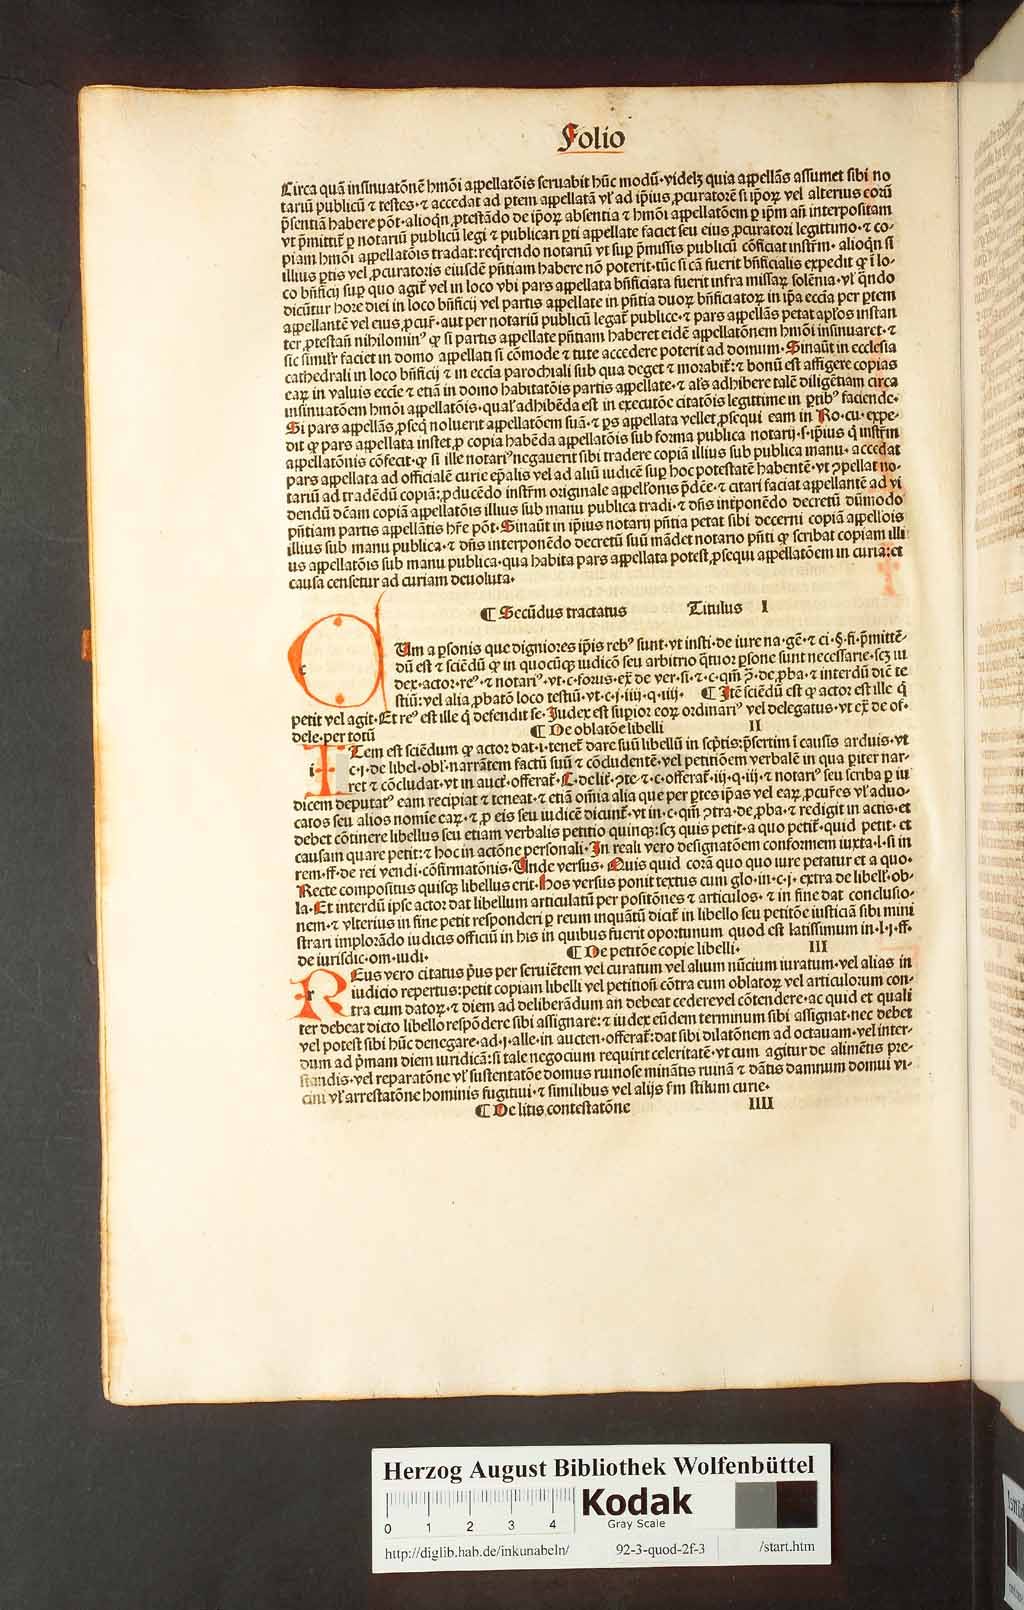 Folio
Circa quã insinuatõnẽ hmõi appellatõis seruabit hũc modũ·videlꝫ quia appellãs assumet sibi no
tariũ publicũ ⁊ testes·⁊ accedat ad ꝑtem appellatã vl' ad ip̃ius ꝓcuratorẽ si ip̃oꝝ vel alterius eorũ
p̃sentiã habere põt·alioqn̄ ꝓtestãdo de ip̃oꝝ absentia ⁊ hmõi appellatõem ꝑ ip̃m añ interpositam
vt p̃mittit̃ ꝑ notariũ publicũ legi ⁊ publicari ꝑti appellate faciet seu eius ꝓcuratori legittimo·⁊ co-
piam hmõi appellatõis tradat:reqˈrendo notariũ vt sup̱ p̃missis publicũ cõficiat instr̃m·alioqn̄ si
illius ꝑtis vel ꝓcuratoris eiusdẽ p̃ntiam habere nõ poterit·tũc si cã fuerit bñficialis expedit ꝙ ĩ lo-
co bñficij sup̱ quo agit̃ vel in loco vbi pars appellata bñficiata fuerit infra missaꝝ solẽnia·vl' qñdo
dicũtur hore diei in loco bñficij vel partis appellate in p̃ntia duoꝝ bñficiatoꝝ in ip̃a ecc̃ia per ꝑtem
appellantẽ vel eius ꝓcur̃·aut per notariũ publicũ legat̃ publice·⁊ pars appellãs petat apl'os instan
ter ꝓtestañ nihilominꝰ ꝙ si partis appellate p̃ntiam haberet eidẽ appellatõnem hmõi insinuaret·⁊
sic simil'r faciet in domo appellati si cõmode ⁊ tute accedere poterit ad domum·Sinaũt in ecclesia
cathedrali in loco bñficij ⁊ in ecc̃ia parochiali sub qua deget ⁊ morabit̃:⁊ bonũ est affigere copias
eaꝝ in valuis ecc̃ie ⁊ etiã in domo habitatõis partis appellate·⁊ al's adhibere talẽ diligẽtiam circa
insinuatõem hmõi appellatõis·qual' adhibẽda est in executõe citatõis legittime in ꝑtibꝰ faciende·
Si pars appellãs ꝓseqˈ noluerit appellatõem suã·⁊ ꝑs appellata vellet ꝓsequi eam in Ro·cu·expe-
dit ꝙ pars appellata instet ꝓ copia habẽda appellatõis sub forma publica notarij·s·ip̃ius qˈ instr̃m
appellatõnis cõfecit·ꝙ si ille notariꝰ negauerit sibi tradere copiã illius sub publica manu·accedat
pars appellata ad officialẽ curie ep̃alis vel ad aliũ iudicẽ sup̱ hoc potestatẽ habentẽ·vt ꝯpellat no-
tariũ ad tradẽdũ copiã:ꝓducẽdo instr̃m originale appell'onis p̃dc̃e·⁊ citari faciat appellantẽ ad vi
dendũ dc̃am copiã appellatõis illius sub manu publica tradi·⁊ dñs int̃ponẽdo decretũ dũmodo
p̃ntiam partis appellãtis hr̃e põt·Sinaũt in ip̃ius notarij p̃ntia petat sibi decerni copiã appell'ois
illius sub manu publica·⁊ dñs interponẽdo decretũ suũ mãdet notario p̃nti ꝙ scribat copiam illi
us appellatõis sub manu publica·qua habita pars appellata potest ꝓsequi appellatõem in curia:et
causa censetur ad curiam deuoluta·
¶ Secũdus tractatus Titulus I
c Um a ꝑsonis que digniores ip̃is rebꝰ sunt·vt insti·de iure na·gẽ·⁊ ci·§·fi·p̃mittẽ-
dũ est ⁊ sciẽdũ ꝙ in quocũqꝫ iudicõ seu arbitrio qˈtuor ꝑsone sunt necessarie·scꝫ iu
dex·actor·reꝰ·⁊ notariꝰ·vt·c·forus·ex̃ de ver·si·⁊·c·qm̃ ꝯ̃·de ꝓba·⁊ interdũ diẽ te
stiũ:vel alia ꝓbatõ loco testiũ·vt·c·j·iiij·q·iiij· ¶ Itẽ sciẽdũ est ꝙ actor est ille qˈ
petit vel agit·Et reꝰ est ille qˈ defendit se·Iudex est sup̱ior eoꝝ ordinariꝰ vel delegatus·vt ex̃ de of·
dele·per totũ ¶ De oblatõe libelli II
i Tem est sciẽdum ꝙ actor dat·i·tenet̃ dare suũ libellũ in sc̃ptis:p̃sertim ĩ causis arduis·vt
c·j·de libel·obl'·narrãtem factũ suũ ⁊ cõcludentẽ·vel petitiõem verbalẽ in qua pˈiter nar-
ret ⁊ cõcludat·vt in auct̃·offerat̃·C·de lit̃·ꝯte·⁊·c·offerat̃·iij·q·iij·⁊ notariꝰ seu scriba ꝑ iu
dicem deputatꝰ eam recipiat ⁊ teneat·⁊ etiã om̃ia alia que per ꝑtes ip̃as vel eaꝝ ꝓcur̃es vl' aduo-
catos seu alios nomie eaꝝ·⁊ ꝓ eis seu iudicẽ dicunt̃·vt in·c·qm̃ ꝯtra·de ꝓba·⁊ redigit in actis·et
debet cõtinere libellus seu etiam verbalis petitio quinqꝫ:scꝫ quis petit·a quo petit̃·quid petit·et
causam quare petit:⁊ hoc in actõne personali·In reali vero designatõem conformem iuxta·l·si in
rem·ff·de rei vendi·cõfirmatõnis·Unde versus·Quis quid corã quo quo iure petatur et a quo·
Recte compositus quisqꝫ libellus erit·Hos versus ponit textus cum glo·in·c·j·extra de libell'·ob-
la·Et interdũ ipse actor dat libellum articulatũ per positõnes ⁊ articulos·⁊ in fine dat conclusio-
nem·⁊ vlterius in fine petit responderi ꝑ reum inquãtũ dicit̃ in libello seu petitõe iusticiã sibi mini
strari implorãdo iudicis officiũ in his in quibus fuerit oportunum quod est latissimum in·l·j·ff·
de iurisdic·om·iudi· ¶ De petitõe copie libelli· III
r Eus vero citatus p̃us per seruiẽtem vel curatum vel alium nũcium iuratum·vel alias in
iudicio repertus:petit copiam libelli vel petitioñ cõtra eum oblatoꝝ vel articulorum con-
tra eum datoꝝ·⁊ diem ad deliberãdum an debeat cederevel cõtendere·ac quid et quali
ter debeat dicto libello respõdere sibi assignare:⁊ iudex eũdem terminum sibi assignat·nec debet
vel potest sibi hũc denegare·ad·j·alle·in aucten·offerat̃:dat sibi dilatõnem ad octauam·vel inter-
dum ad p̃mam diem iuridicã:si tale negocium requirit celeritatẽ·vt cum agitur de alimẽtis pre-
standis·vel reparatõne vl' sustentatõe domus ruinose minãtis ruinã ⁊ dãtis damnum domui vi-
cini vl' arrestatõne hominis fugitiui·⁊ similibus vel alijs s̃m stilum curie·
¶ De litis contestatõne IIII
Herzog August Bibliothek Wolfenbüttel
0 1 2 3 4
Kodak
Gray Scale
http://diglib.hab.de/inkunabeln/ 92-3-quod-2f-3 /start.htm